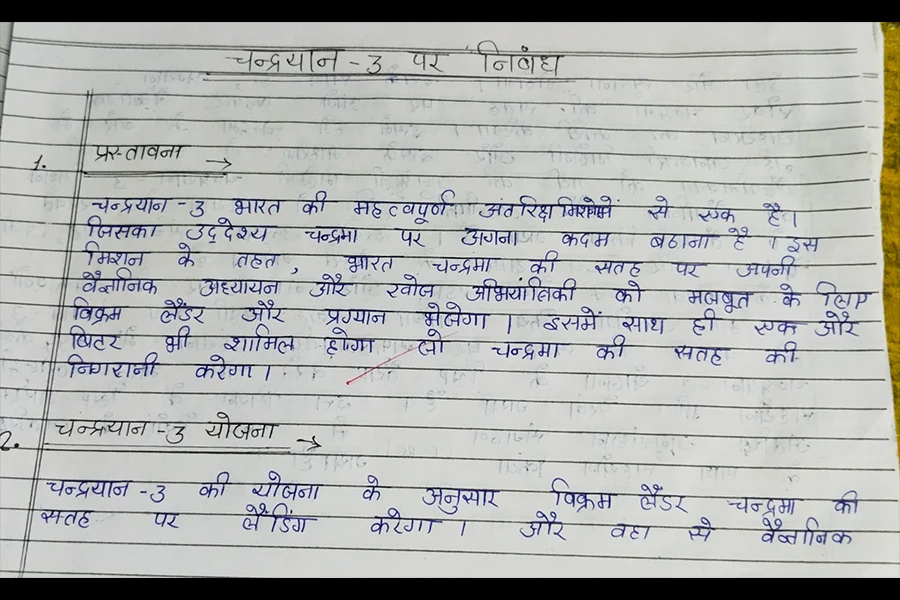 चन्द्रयान -3 पर निबंध
1. प्रस्तावना →
चन्द्रयान -3 भारत की महत्वपूर्ण अंतरिक्ष में से एक है।
जिसका उद्देश्य चन्द्रमा पर अगना कदम बठाना है । इस
मिशन के तहत , भारत चन्द्रमा की सतह पर अपनी
वैज्ञानिक अध्यायना और खोज अभियांत्रिकी को मजबूत के लिए
विक्रम लैंडर और प्रग्यान भेजेगा । इसमें साथ ही एक और
बिटर भी शामिल होगा जो चन्द्रमा की सतह की
निगरानी करेगा ।
2. चन्द्रयान -3 योजना →
चन्द्रयान -3 की योजना के अनुसार विक्रम लैंडर चन्द्रमा की
सतह पर लैडिंग करेगा । और वहा से वैज्ञानिक